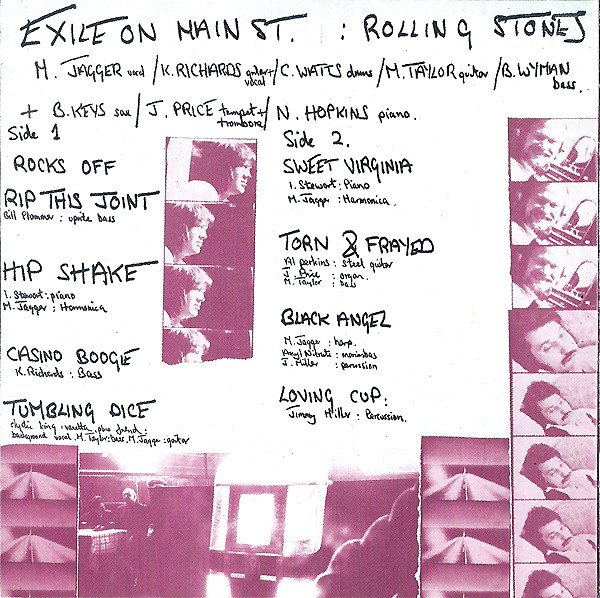 EXILE ON MAIN ST. : ROLLING STONES
M. JAGGER vocal / K. RICHARDS guitar + vocal / C. WATTS drums / M. TAYLOR guitar / B. WYMAN bass.
+ B. KEYS sax / J. PRICE trumpet + trombone / N. HOPKINS piano.
Side 1
ROCKS OFF
RIP THIS JOINT
Bill Plummer : uprite bass
HIP SHAKE
I. Stewart : piano
M. Jagger : Harmonica
CASINO BOOGIE
K. Richards : Bass
TUMBLING DICE
clydie king : vanetta plus friend :
background vocal. M. Taylor : bass. M. Jagger : guitar
Side 2.
SWEET VIRGINIA
I. Stewart : Piano
M. Jagger : Harmonica.
TORN & FRAYED
Al perkins : steel guitar
J. Price : organ.
M. Taylor : bass
BLACK ANGEL
M. Jagger : harp.
Amyl Nitrate : marimbas
J. Miller : percussion
LOVING CUP :
Jimmy Miller : Percussion.